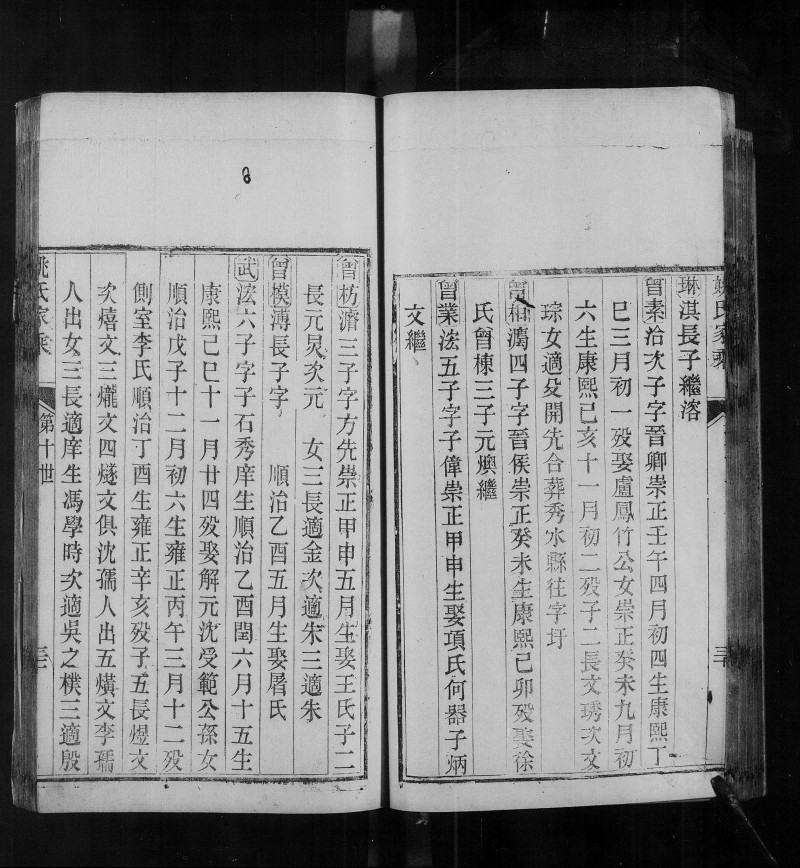 姚氏家乘
琳淇長子繼溶
曾素治次子字晉卿崇正壬午四月初四生康熙丁
巳三月初一歿娶盧鳳竹公女崇正癸未九月初
六生康熙己亥十一月初二歿子二長文琇次文
琮女適殳開先合葬秀水縣往字圩
曾柏濿四子字晉侯崇正癸未生康熙己卯歿娶徐
氏曾棟三子元燠繼
曾業法五子字子偉崇正甲申生娶項氏何器子炳
文繼
曾枋濟三子字方先崇正甲申五月生娶王氏子二
長元炅次元 女三長適金次適朱三適朱
曾模溥長子字 順治乙酉五月生娶屠氏
武浤六子字子石秀庠生順治乙酉閏六月十五生
康熙己巳十一月廿四歿娶解元沈受範公孫女
順治戊子十二月初六生雍正丙午三月十二歿
側室李氏順治丁酉生雍正辛亥歿子五長煜文
次熺文三爖文四燧文俱沈孺人出五熿文李孺
人出女三長適庠生馮學時次適吳之樸三適殷
姚氏家乘 第十世
8